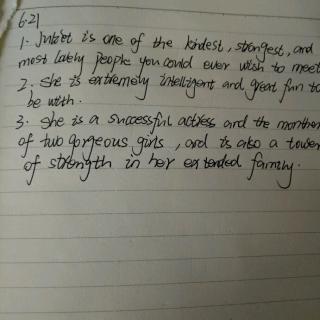 6.21
1. Juliet is one of the kindest, strongest, and
most lately people you could ever wish to meet
2. She is extremely intelligent and great fun to
be with.
3. She is a successful actress and the monther
of two gorgeous girls, and is also a tower
of strength in her extended family.